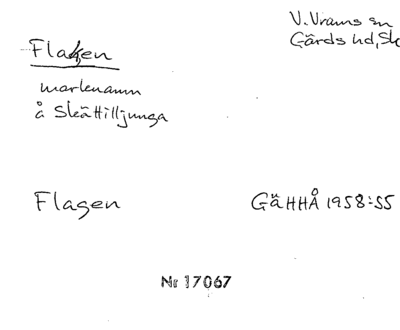 V. Vrams sn
Gärds hd, Sk
Flaken
marknamn
å Skättilljunga
Flagen
GäHHÅ 1958:55
Nr 17067